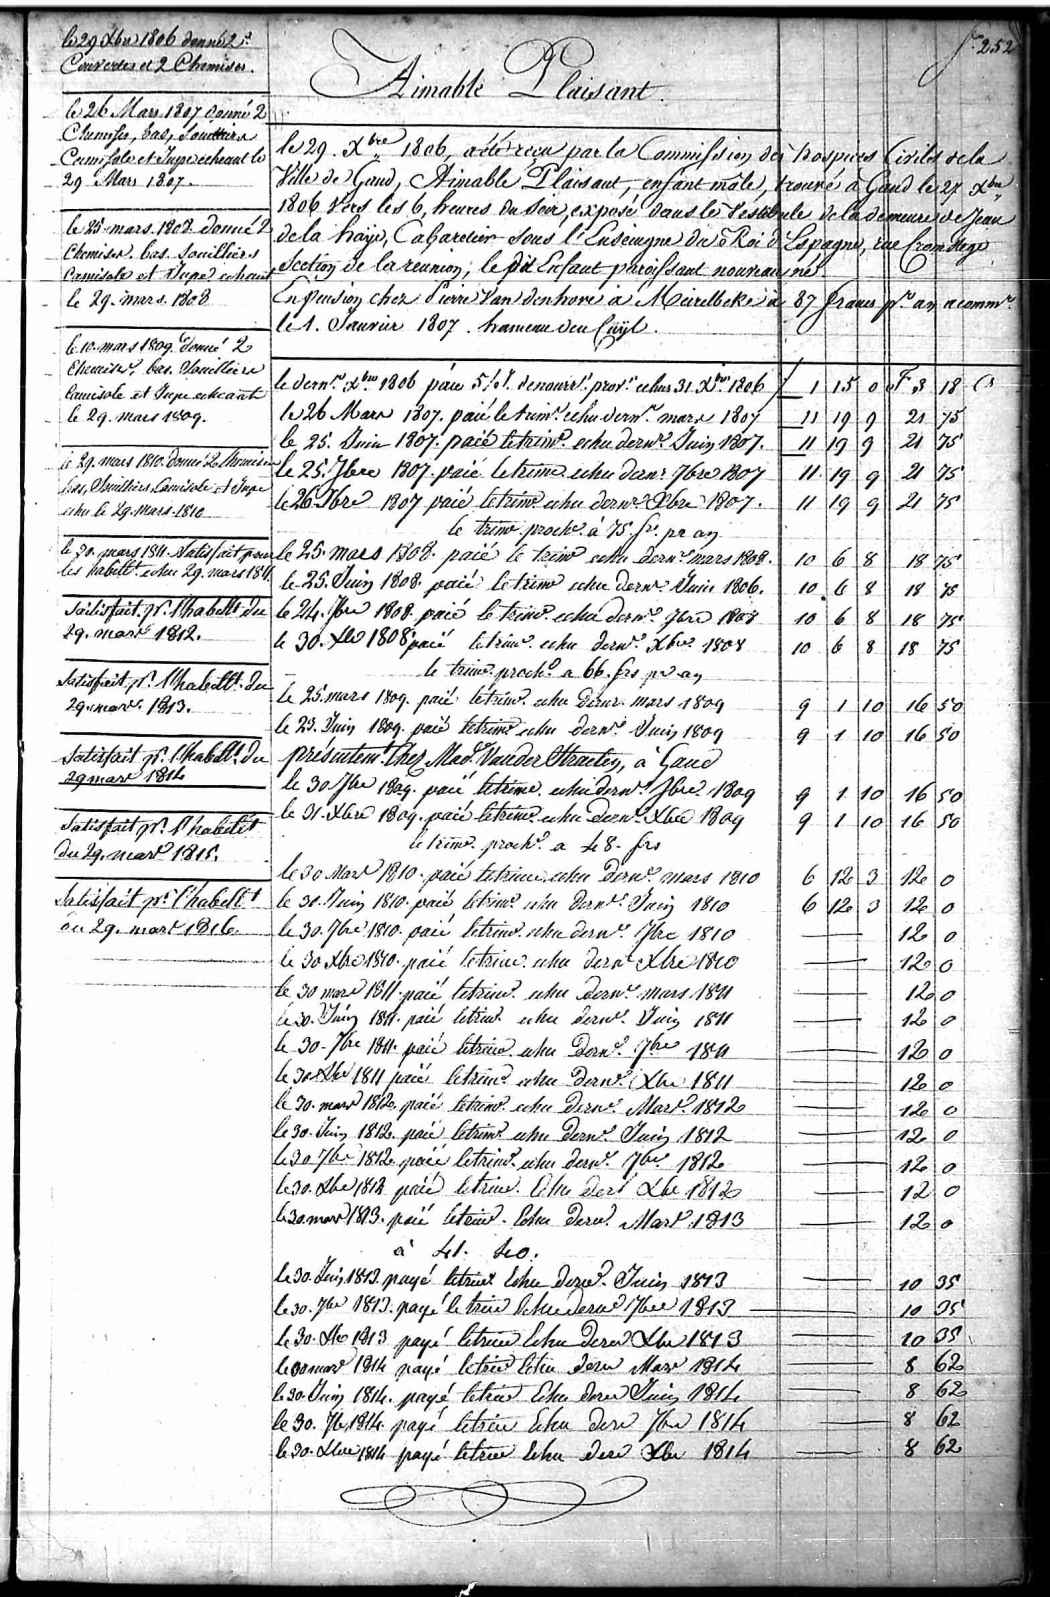 f.° 252
Aimable Plaisant.
le 29 Xbre 1806 donné 2
Couvertes et 2 Chemises.
le 26 Mars 1807 donné 2
Chemises, bas, Souilliers
Camisole et Jupe echeant le
29 Mars 1807.
le 25 mars. 1808 donné 2
Chemises. bas. Souilliers
Camisole et Jupe echeant
le 29. mars. 1808
le 10. mars 1809. donné 2
Chemises. bas. Souilliers
Camisole et Jupe echeant
le 29. mars 1809.
le 29. mars 1810. donné 2 Chemises
bas, Souilliers, Camisole et Jupe
echu le 29. mars. 1810
le 30. mars 1811. Satisfait pour
les habillt. echu 29. mars 1811.
Satisfait pr. l'habillt. du
29. mars 1812.
Satisfait pr. l'habillt. du
29. mars. 1813.
Satisfait pr. l'habillt. du
29 mars 1814
Satisfait pr. l'habillt
du 29. mars 1815.
Satisfait pr. l'habillt
du 29. mars 1816.
le 29. Xbre 1806, a été reçu par la Commission des hospices Civiles de la
Ville de Gand, Aimable Plaisant, enfant mâle, trouvé à Gand le 27 Xbre
1806 vers les 6, heures du Soir, exposé dans le Vestibule de la demeure de Jean
de la haije, Cabaretier sous l'Enseigne du Roi d'Espagne, rue
Section de la reunion, le dit Enfant paroissant nouveau né
En pension chez Pierre Van denhove à Meirelbeke à 87 francs pr. an a commr.
le 1. Janvier 1807. hameau
le dernr. Xbre 1806 paié 5 echus 31. Xbre 1806 1 15 0 F 3 18 Cs
le 26 Mars 1807. paié le trimr. echu dernr. mars 1807 11 19 9 21 75
le 25. Juin 1807. paié le trimr. echu dernr. Juin 1807. 11 19 9 21 75
le 25. 7bre 1807. paié le trime echu dernr. 7bre 1807 11 19 9 21 75
le 26 1807 paié le trimr echu dernr. Xbre 1807. 11 19 9 21 75
le trimr. prochn. à 75. frs. pr an
le 25. mars 1808. paié le trimr echu dernr. mars 1808. 10 6 8 18 75
le 25. Juin 1808. paié le trimr echu dernr. Juin 1806. 10 6 8 18 75
le 24. 7bre 1808. paié le trimr. echu dernr. 7bre 1808 10 6 8 18 75
le 30. Xbre 1808 paié le trimr. echu dernr. Xbre. 1808 10 6 8 18 75
le trimr. prochn. a 66. frs pr an
le 25. mars 1809. paié le trimr. echu dernr. mars 1809 9 1 10 16 50
le 23. Juin 1809. paié le trimr. echu dernr. Juin 1809 9 1 10 16 50
présentemt. chez Mad. Vander Straeten, à Gand
le 30 7bre 1809. paié le trime. echu dernr. 7bre. 1809 9 1 10 16 50
le 31. Xbre 1809. paié le trimr. echu dernr. Xbre 1809 9 1 10 16 50
le trimr. prochn. a 48. frs
le 30 Mars 1810. paié le trime. echu dernr. mars 1810 6 12 3 12 0
le 30. Juin 1810. paié le trimr. echu dernr. Juin 1810 6 12 3 12 0
le 30. 7bre 1810. paié le trimr. echu dernr. 7bre 1810 — 12 0
le 30 Xbre 1810. paié le trimr. echu dernr Xbre 1810 — 12 0
le 30 mars 1811. paié le trimr. echu dernr. mars. 1811 — 12 0
le 30. Juin 1811. paié le trimr. echu dernr. Juin 1811 — 12 0
le 30. 7bre 1811. paié le trimr. echu dernr. 7bre 1811 — 12 0
le 30 Xbre 1811 paié le trimr. echu dernr. Xbre 1811 — 12 0
le 30. mars 1812. paié le trimr. echu dernr. Mars. 1812 — 12 0
le 30. Juin 1812. paié le trimr. echu dernr. Juin 1812 — 12 0
le 30 7bre 1812. paié le trimr. echu dernr. 7bre. 1812 — 12 0
le 30. Xbre 1812 paié le trimr. Echu derr Xbre 1812 — 12 0
le 30. mars 1813. paié le trimr. Echu dernr. Mars. 1813 — 12 0
à 41. 40.
le 30. Juin 1813. payé le trimr Echu dernr. Juin 1813 — 10 35
le 30. 7bre 1813. payé le trimr Echu dernr 7bre 1813 — 10 35
le 30. Xbre 1813 payé le trimr Echu dernr Xbre 1813 — 10 35
le 30 mars 1814 payé le trimr Echu dernr Mars 1814 — 8 62
le 30. Juin 1814. payé le trimr Echu dernr Juin 1814 — 8 62
le 30. 7bre 1814. payé le trimr Echu dernr 7bre 1814 — 8 62
le 30. Xbre 1814 payé le trimr Echu dernr Xbre 1814 — 8 62